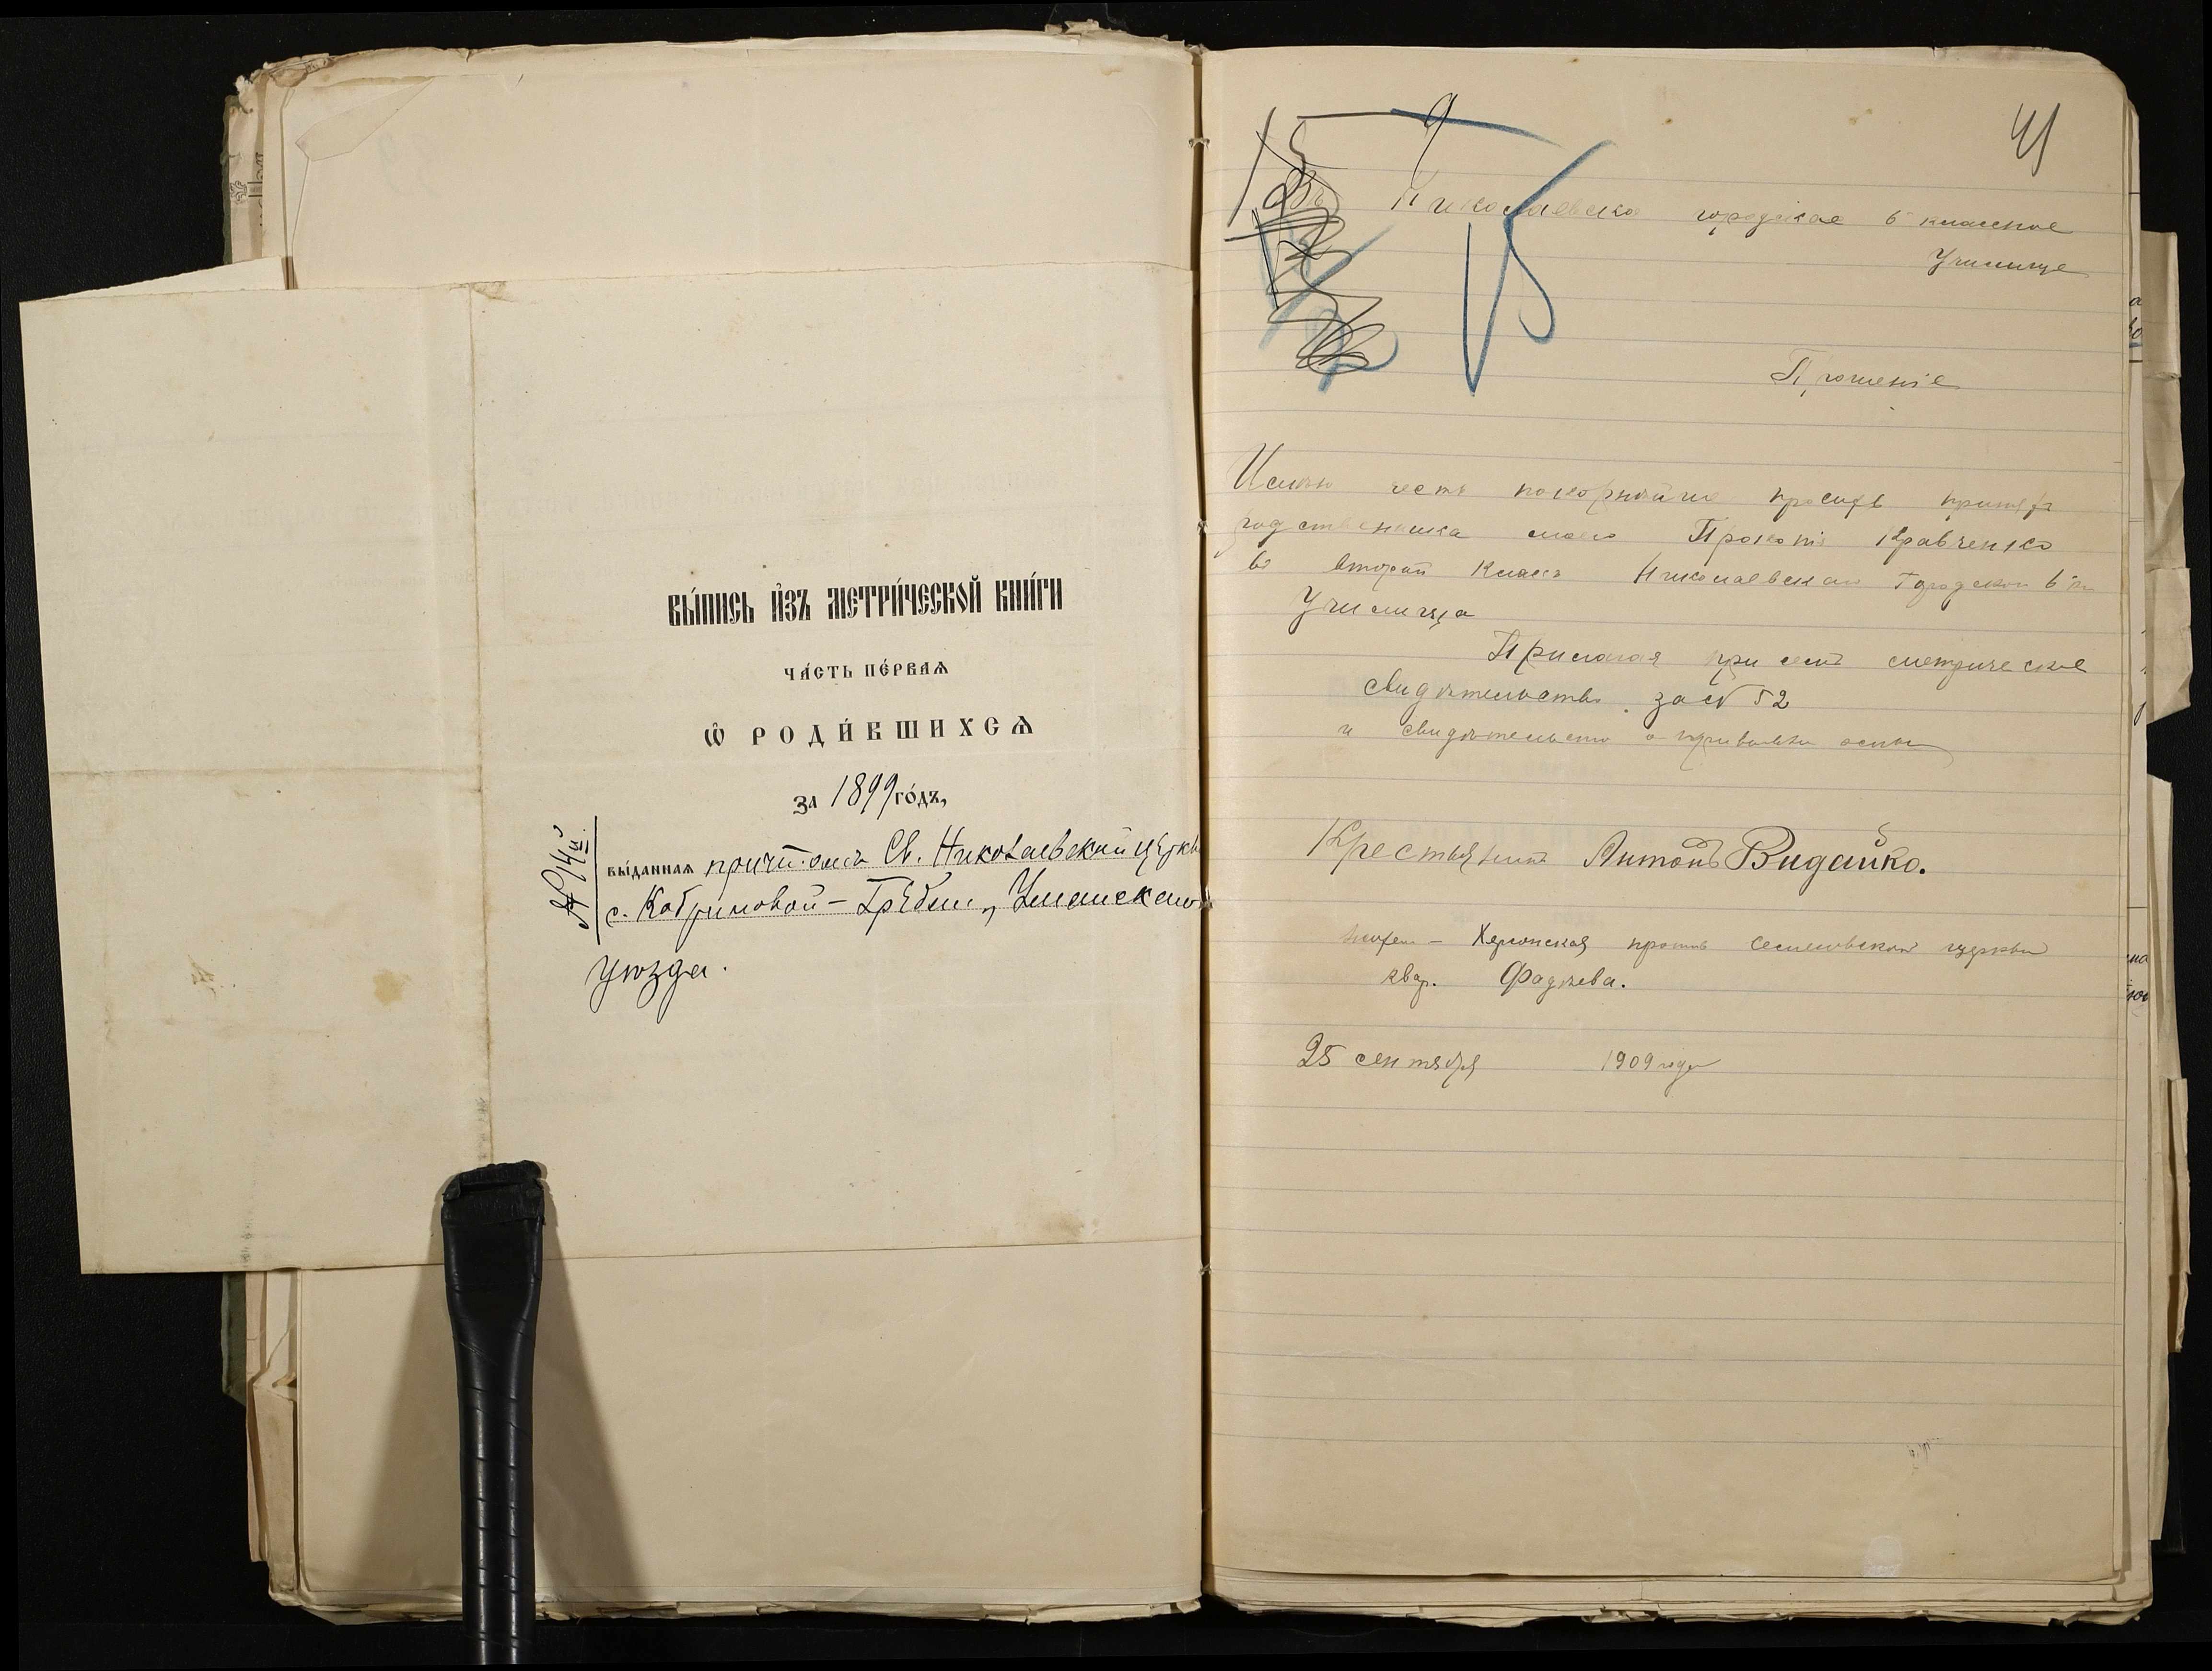 ВЫ́ПИСЬ И҆ЗЪ МЕТРИ́ЧЕСКОЙ КНИ́ГИ
ЧА́СТЬ ПЕ́РВАѦ
Ѡ҆ РОДИ́ВШИХСѦ
ЗА 1899 ГО́ДЪ,
№ 14й
ВЫ́ДАННАѦ причтомъ Св. Николаевской церкв
с. Кобриновой-Гребли, Уманскаго
уѣзда.
41
Въ Николаевское городское 6 классное
Училище
Прошеніе
Имѣю честь покорнѣйше просить принять
родственика моего Прокопія Кравченко
во второй Классъ Николаевскаго Городского 6 кл
Училища
Прилагая при семъ метрическое
свидѣтельство за № 52
и свидѣтельство о прививки оспы
Крестьянинъ Антонъ Видайко.
Херсонская противъ церкви
квар. Фадѣева.
25 сентября 1909 года